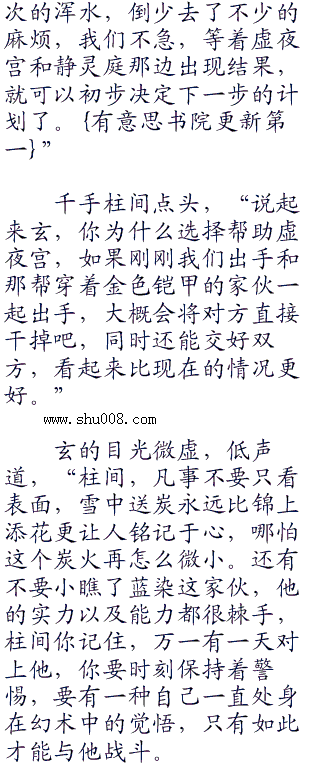 次的浑水，倒少去了不少的
麻烦，我们不急，等着虚夜
宫和静灵庭那边出现结果，
就可以初步决定下一步的计
划了。{有意思书院更新第
一}”
千手柱间点头，“说起
来玄，你为什么选择帮助虚
夜宫，如果刚刚我们出手和
那帮穿着金色铠甲的家伙一
起出手，大概会将对方直接
干掉吧，同时还能交好双
方，看起来比现在的情况更
好。”
www.shu008.com
玄的目光微虚，低声
道，“柱间，凡事不要只看
表面，雪中送炭永远比锦上
添花更让人铭记于心，哪怕
这个炭火再怎么微小。还有
不要小瞧了蓝染这家伙，他
的实力以及能力都很棘手，
柱间你记住，万一有一天对
上他，你要时刻保持着警
惕，要有一种自己一直处身
在幻术中的觉悟，只有如此
才能与他战斗。